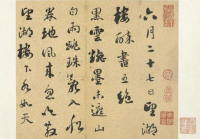 六月二十七日望湖
樓醉書五絕
黑雲翻墨未遮山
白雨跳珠亂入船
卷地風來忽吹散
望湖樓下水如天